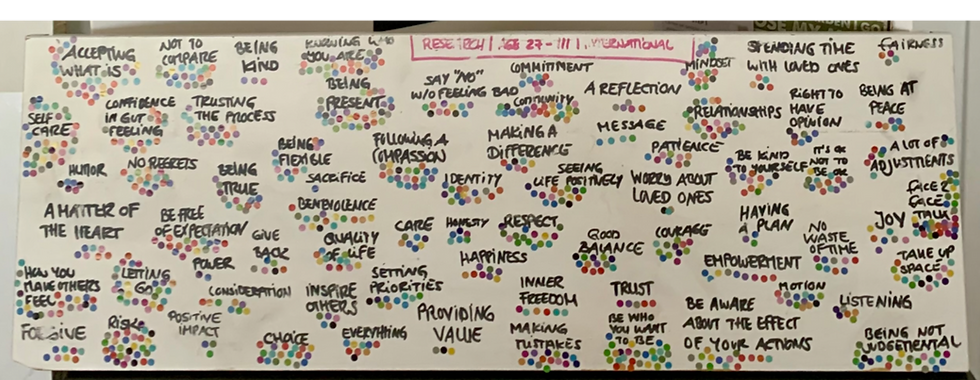 ACCEPTING
WHAT is
NOT TO
COMPARE
BEING
KIND
KNOWING WHO
YOU ARE
AGE 27 - 111 | INTERNATIONAL
MINDSET
SPENDING TIME
WITH LOVED ONES
FAIRNESS
SELF
CARE
CONFIDENCE
IN GUT
FEELING
TRUSTING
THE PROCESS
BEING
PRESENT
SAY "NO"
W/O FEELING BAD
COMMITMENT
COMMUNITY
A REFLECTION
MESSAGE
RELATIONSHIPS
RIGHT TO
HAVE
OPINION
BEING AT
PEACE
HUMOR
NO REGRETS
BEING
TRUE
BEING
FLEXIBLE
SACRIFICE
FOLLOWING A
COMPASSION
IDENTITY
MAKING A
DIFFERENCE
SEEING
LIFE POSITIVELY
PATIENCE
WORRY ABOUT
LOVED ONES
BE KIND
TO YOURSELF
IT'S OK
NOT TO
BE OK
A LOT OF
ADJUSTMENTS
FACE 2
FACE
TALK
A MATTER OF
THE HEART
BE FREE
OF EXPECTATION
GIVE
BACK
BENEVOLENCE
QUALITY
OF LIFE
CARE
HONESTY
RESPECT
HAPPINESS
GOOD
BALANCE
COURAGE
HAVING
A PLAN
NO
WASTE
OF TIME
JOY
TAKE UP
SPACE
HOW YOU
MAKE OTHERS
FEEL
LETTING
GO
POWER
CONSIDERATION
INSPIRE
OTHERS
SETTING
PRIORITIES
PROVIDING
VALUE
INNER
FREEDOM
TRUST
EMPOWERMENT
MOTION
LISTENING
FORGIVE
RISK
POSITIVE
IMPACT
CHOICE
EVERYTHING
MAKING
MISTAKES
BE WHO
YOU WANT
TO BE
BE AWARE
ABOUT THE EFFECT
OF YOUR ACTIONS
BEING NOT
JUDGEMENTAL